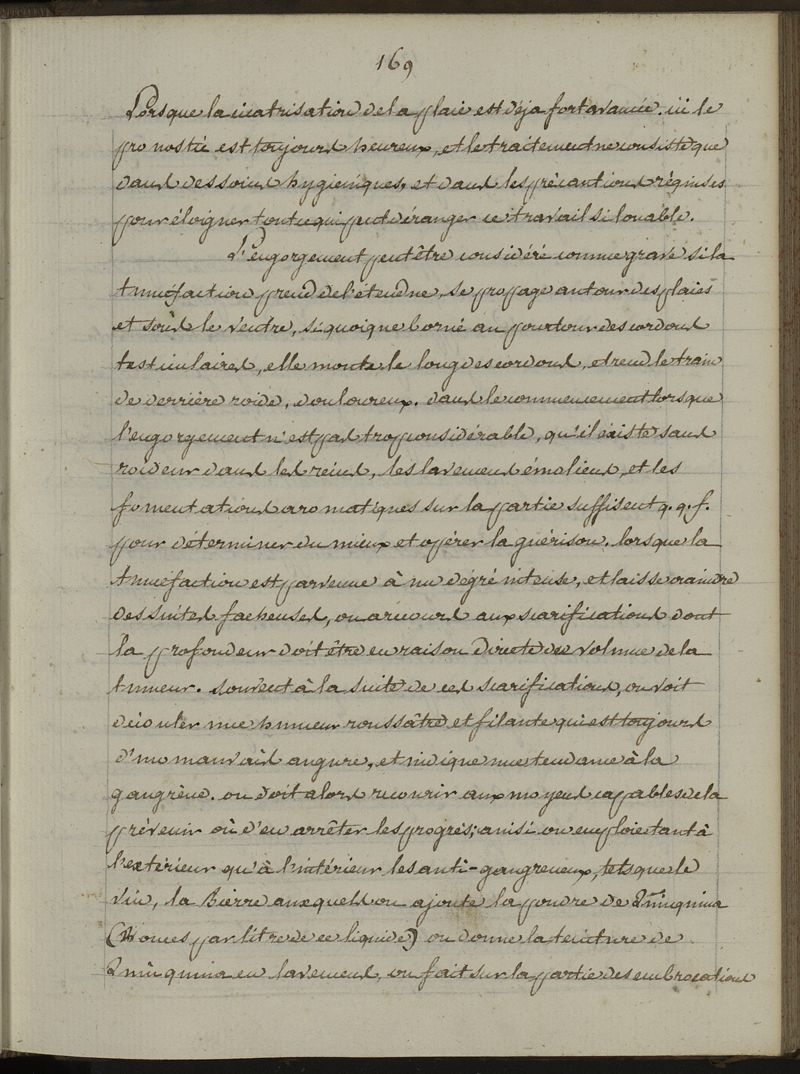 169
Lorsque la cicatrisation de la plaie est déja fort avancée. ici le
pronostic est toujours heureux, et le traitement ne consiste que
dans des soins hygieniques, et dans les précautions réquises
pour éloigner tout ce qui peut déranger ce travail si louable.
L'engorgement peut être considéré comme grave si la
tumefaction prend de l'étendue, se propage autour des plaies
et sous le ventre, si quoique borné au pourtour des cordons
testiculaires, elle monte le long des cordons, et rend le train
de derrière roide, douloureux. dans le commencement lorsque
l'engorgement n'est pas trop considérable, qu'il existe sans
roideur dans les reins, les lavemens émoliens, et les
fomentations aromatiques sur la partie suffisent q.q.f.
pour déterminer du mieux et opérer la guérison. lorsque la
tumefaction est parvenue à un dégré intense, et laisse craindre
des suites facheuses, on a recours aux scarifications dont
la profondeur doit être en raison directe du volume de la
tumeur. souvent à la suite de ces scarifications, on voit
découler une humeur roussâtre et filante qui est toujours
d'un mauvais augure, et indique une tendance à la
gangrène. on doit alors recourir aux moyens capables de la
prévenir où d'en arrêter les progrès; ainsi on emploie tant à
l'extérieur qu'à l'intérieur les anti-gangreneux, tels que le
vin, la Bierre auxquels on ajoute la poudre de Quinquina
onces par litre de ce liquide) on donne la teinture de
Quinquina en lavemens, on fait sur la partie des embrocations